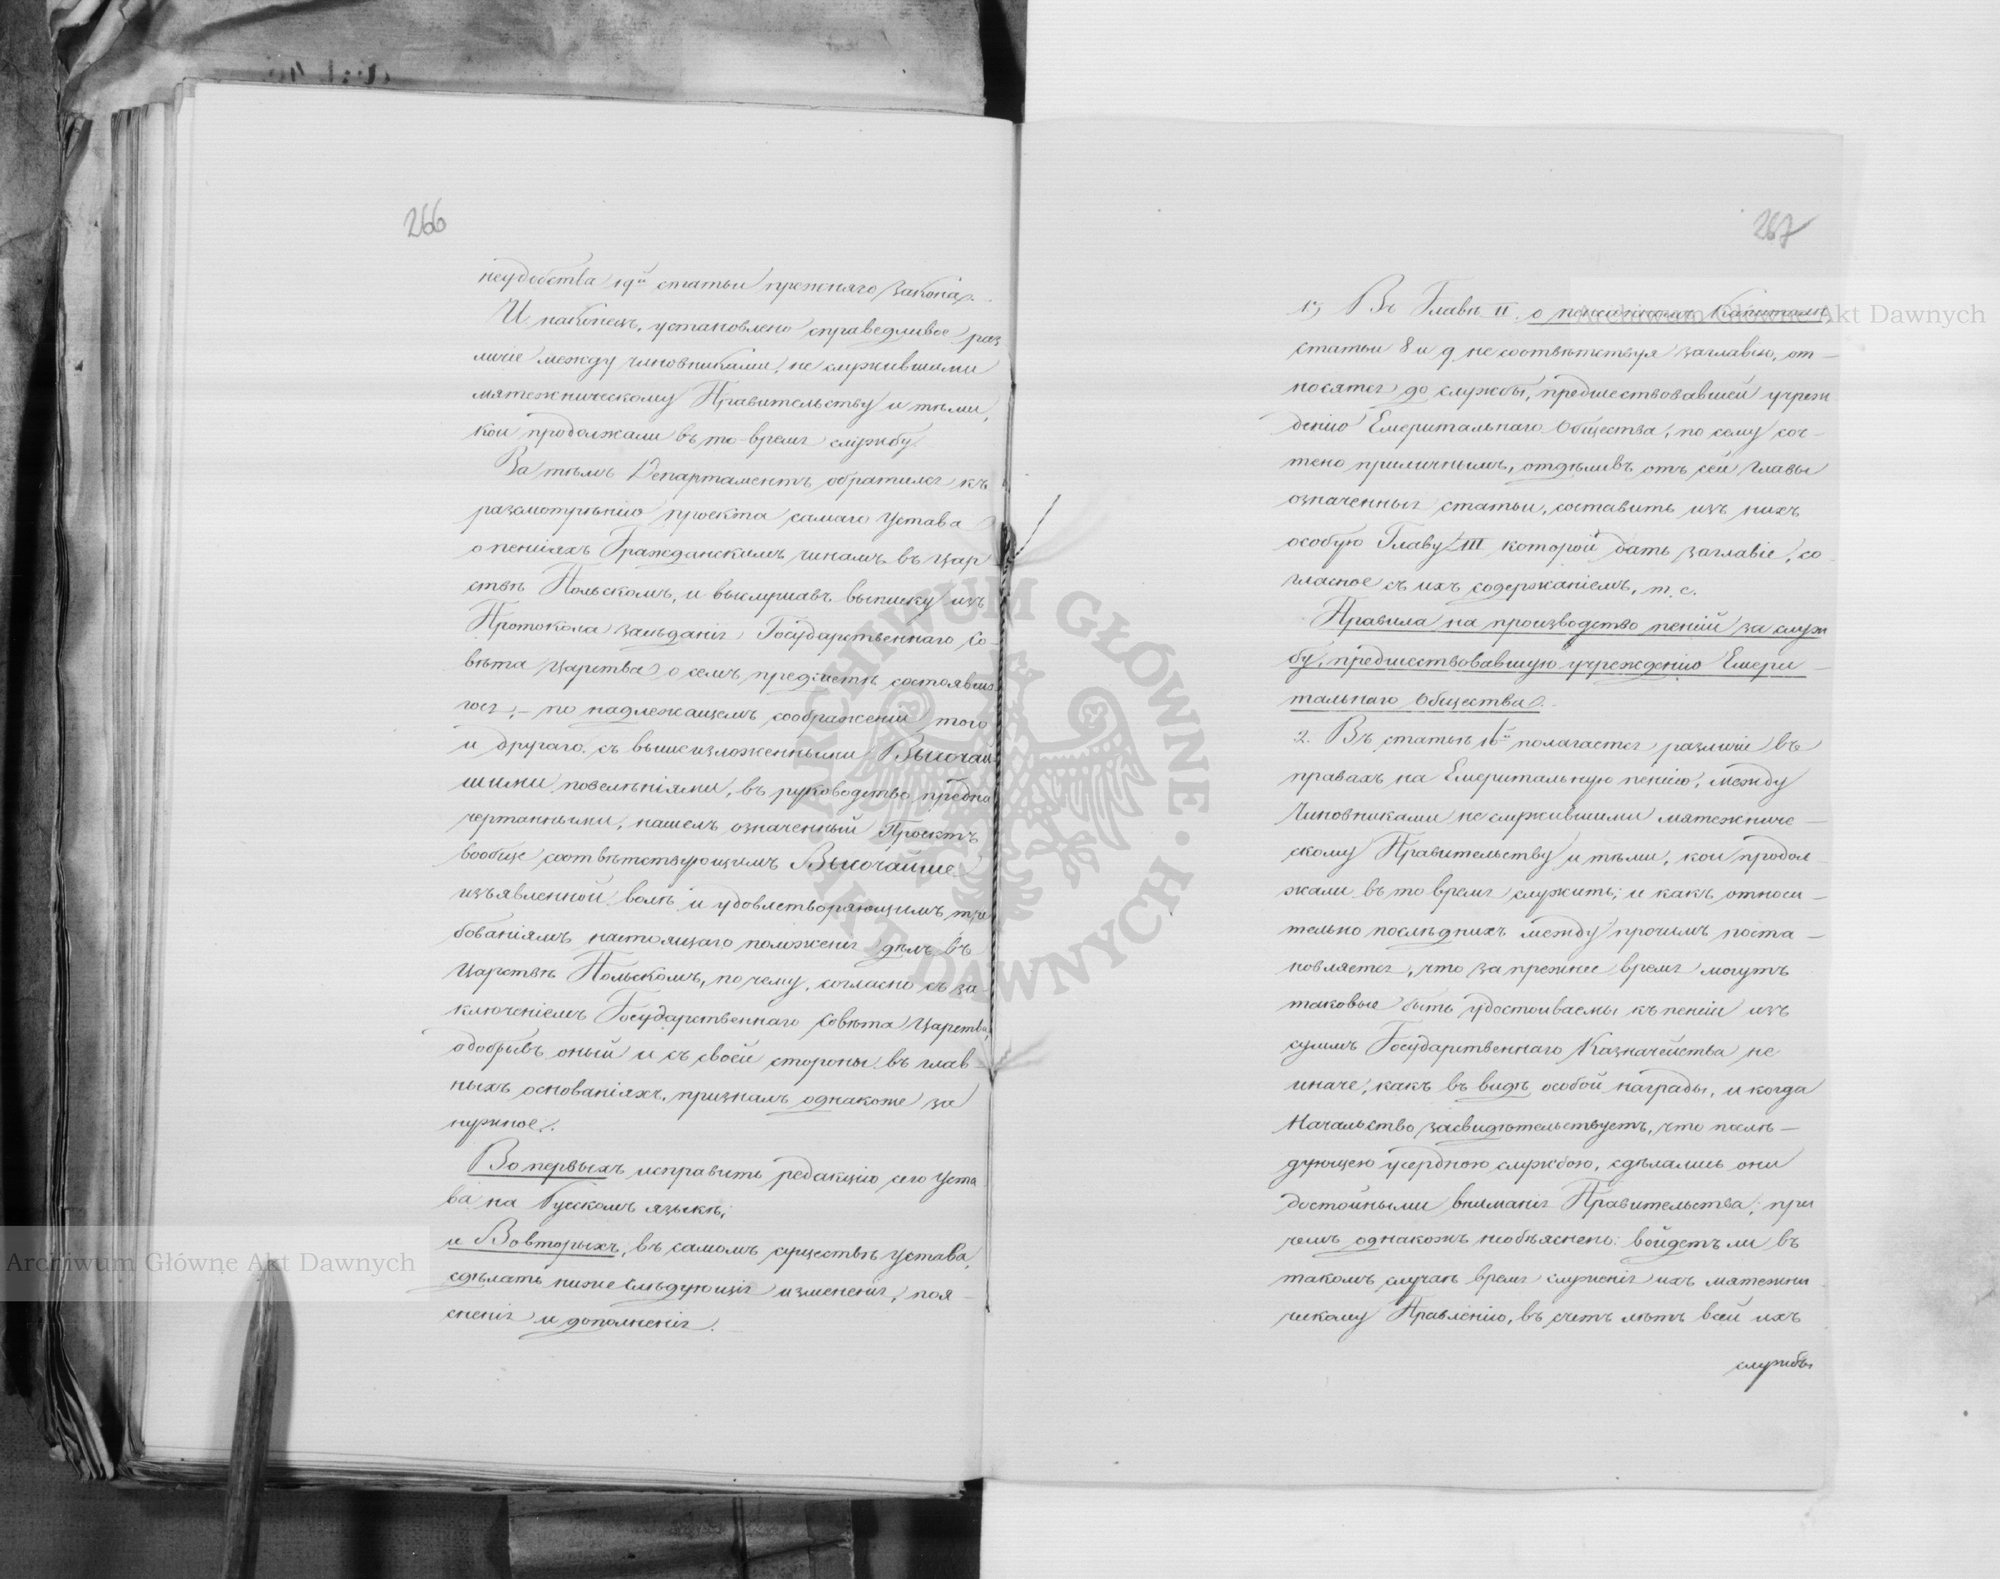 266
неудобства 19й статьи прежняго закона.
И наконецъ, установлено справедливое раз
личіе между чиновниками, не служившими
мятежническому Правительству и тѣми,
кои продолжали въ то время службу.
За тѣмъ Департаментъ обратился къ
разсмотрѣнію проекта самаго Устава
о пенсіяхъ Гражданскимъ чинамъ въ Цар
ствѣ Польскомъ, и выслушавъ выписку изъ
Протокола засѣданія Государственнаго Со
вѣта Царства о семъ предметѣ состоявша
гося, – по надлежащемъ соображеніи того
и другаго съ вышеизложенными Высочай
шими повелѣніями, въ руководство предна
чертанными, нашелъ означенный Проектъ
вообще соотвѣтствующимъ Высочайше
изъявленной волѣ и удовлетворяющимъ тре
бованіямъ настоящаго положенія дѣлъ въ
Царствѣ Польскомъ, по чему, согласно съ за
ключеніемъ Государственнаго Совѣта Царства,
одобривъ оный и съ своей стороны въ глав
ныхъ основаніяхъ, призналъ однакоже за
нужное.
Во первыхъ исправить редакцію сего Уста
ва на Русскомъ языкѣ;
и Вовторыхъ, въ самомъ существѣ Устава,
сдѣлать нижеслѣдующія измененія, поя –
сненія и дополненія.
267
1, Въ Главѣ II. о пенсіонномъ Капиталѣ,
статьи 8 и 9 не соотвѣтствуя заглавію, от –
носятся до службы, предшествовавшей учреж
денію Емеритальнаго Общества, по сему соч –
тено приличнымъ, отдѣливъ отъ сей Главы
означенныя статьи, составить изъ нихъ
особую Главу III которой дать заглавіе, со
гласное съ ихъ содержаніемъ, т. е.
Правила на производство пенсій за служ
бу, предшествовавшую учрежденію Емери –
тальнаго Общества.
2. Въ статьѣ 16й полагается различіе въ
правахъ на Емеритальную пенсію, между
Чиновниками не служившими мятежниче –
скому Правительству и тѣми, кои продол –
жали въ то время служить; и какъ относи –
тельно послѣднихъ между прочимъ поста –
новляется, что за прежнее время могутъ
таковые быть удостоиваемы къ пенсіи изъ
суммъ Государственнаго Казначейства не
иначе, какъ въ видѣ особой награды, и когда
Начальство засвидѣтельствуетъ, что послѣ –
дующею усердною службою, сдѣлались они
достойными вниманія Правительства; при
чемъ однакожъ необъяснено: войдетъ ли въ
такомъ случаѣ время служенія ихъ мятежни –
ческому Правленію, въ счетъ лѣтъ всей ихъ
службы
Archiwum Główne Akt Dawnych
Archiwum Główne Akt Dawnych
ARCHIWUM GŁÓWNE · AKT DAWNYCH ·